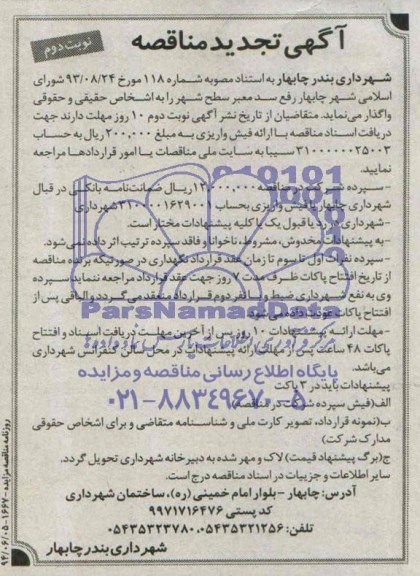 آگهی تجدید مناقصه
نوبت دوم
شهرداری بندر چابهار به استناد مصوبه شماره ۱۱۸ مورخ ۹۳/۰۸/۲۴ شورای
اسلامی شهر چابهار رفع سد معبر سطح شهر را به اشخاص حقیقی و حقوقی
واگذار می‌نماید. متقاضیان از تاریخ نشر آگهی نوبت دوم ۱۰ روز مهلت دارند جهت
دریافت اسناد مناقصه با ارائه فیش واریزی به مبلغ ۲۰۰,۰۰۰ ریال به حساب
۳۱۰۰۰۰۰۰۲۵۰۰۳ سیبا به سایت ملی مناقصات یا امور قراردادها مراجعه
نمایید.
- سپرده شرکت در مناقصه ۱۲,۰۰۰,۰۰۰ ریال ضمانت‌نامه بانکی در قبال
شهرداری چابهار یا فیش واریزی بحساب شهرداری
- شهرداری در رد یا قبول یک یا کلیه پیشنهادات مختار است.
- به پیشنهادات مخدوش، مشروط، ناخوانا و فاقد سپرده ترتیب اثر داده نمی‌شود.
- سپرده نفرات اول تا سوم تا زمان عقد قرارداد نگهداری در صورتیکه برنده مناقصه
از تاریخ افتتاح پاکات ظرف مدت ۷ روز جهت عقد قرارداد مراجعه ننماید سپرده
وی به نفع شهرداری ضبط و با نفر دوم قرارداد منعقد می‌گردد و الباقی پس از
افتتاح پاکات عودت داده می‌شود.
- مهلت ارائه پیشنهادات ۱۰ روز پس از آخرین مهلت دریافت اسناد و افتتاح
پاکات ۴۸ ساعت پس از مهلت ارائه پیشنهادات در محل سالن کنفرانس شهرداری
می‌باشد.
پیشنهادات باید در ۳ پاکت
الف(فیش سپرده شرکت در مناقصه)
ب(نمونه قرارداد، تصویر کارت ملی و شناسنامه متقاضی و برای اشخاص حقوقی
مدارک شرکت)
ج(برگ پیشنهاد قیمت) لاک و مهر شده به دبیرخانه شهرداری تحویل گردد.
سایر اطلاعات و جزییات در اسناد مناقصه درج است.
آدرس: چابهار - بلوار امام خمینی (ره)، ساختمان شهرداری
کد پستی ۹۹۷۱۷۱۶۴۷۶
تلفن: ۰۵۴۳۵۳۲۱۲۵۶-۰۵۴۳۵۳۲۳۷۸۰
شهرداری بندر چابهار
روزنامه مناقصه مزایده - ۱۶۶۷ - ۹۴/۰۶/۰۵
ParsNamadData
پایگاه اطلاع رسانی مناقصه و مزایده
۰۲۱-۸۸۳۴۹۶۷۰-۵